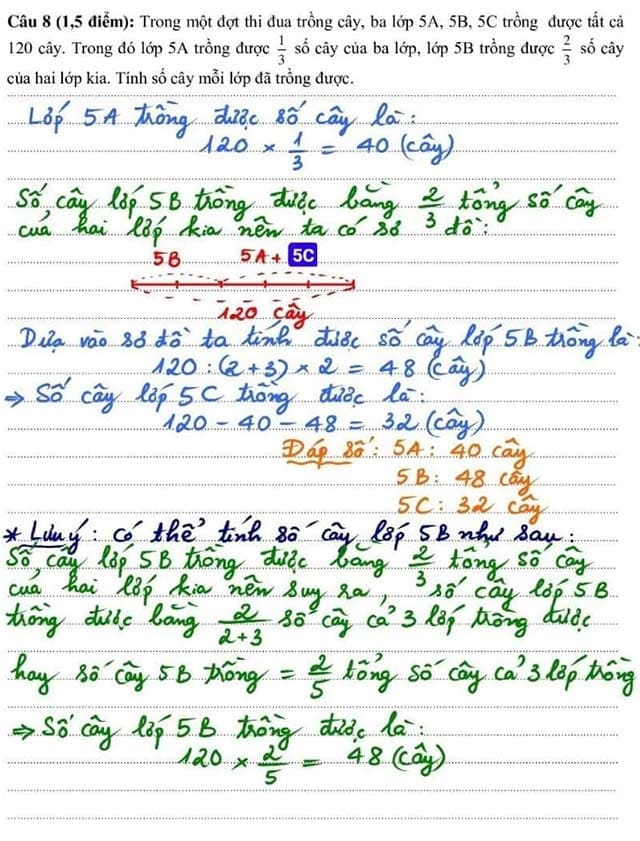 Câu 8 (1,5 điểm): Trong một đợt thi đua trồng cây, ba lớp 5A, 5B, 5C trồng được tất cả
120 cây. Trong đó lớp 5A trồng được 1/3 số cây của ba lớp, lớp 5B trồng được 2/3 số cây
của hai lớp kia. Tính số cây mỗi lớp đã trồng được.
Lớp 5A trồng được số cây là:
120 × 1/3 = 40 (cây)
Số cây lớp 5B trồng được bằng 2/3 tổng số cây
của hai lớp kia nên ta có sơ đồ:
5B 5A + 5C
120 cây
Dựa vào sơ đồ ta tính được số cây lớp 5B trồng là:
120 : (2 + 3) × 2 = 48 (cây)
⇒ Số cây lớp 5C trồng được là:
120 - 40 - 48 = 32 (cây)
Đáp số: 5A: 40 cây
5B: 48 cây
5C: 32 cây
* Lưu ý: có thể tính số cây lớp 5B như sau:
Số cây lớp 5B trồng được bằng 2/3 tổng số cây
của hai lớp kia nên suy ra, số cây lớp 5B
trồng được bằng 2/(2+3) số cây cả 3 lớp trồng được
hay số cây 5B trồng = 2/5 tổng số cây cả 3 lớp trồng
⇒ Số cây lớp 5B trồng được là:
120 × 2/5 = 48 (cây)